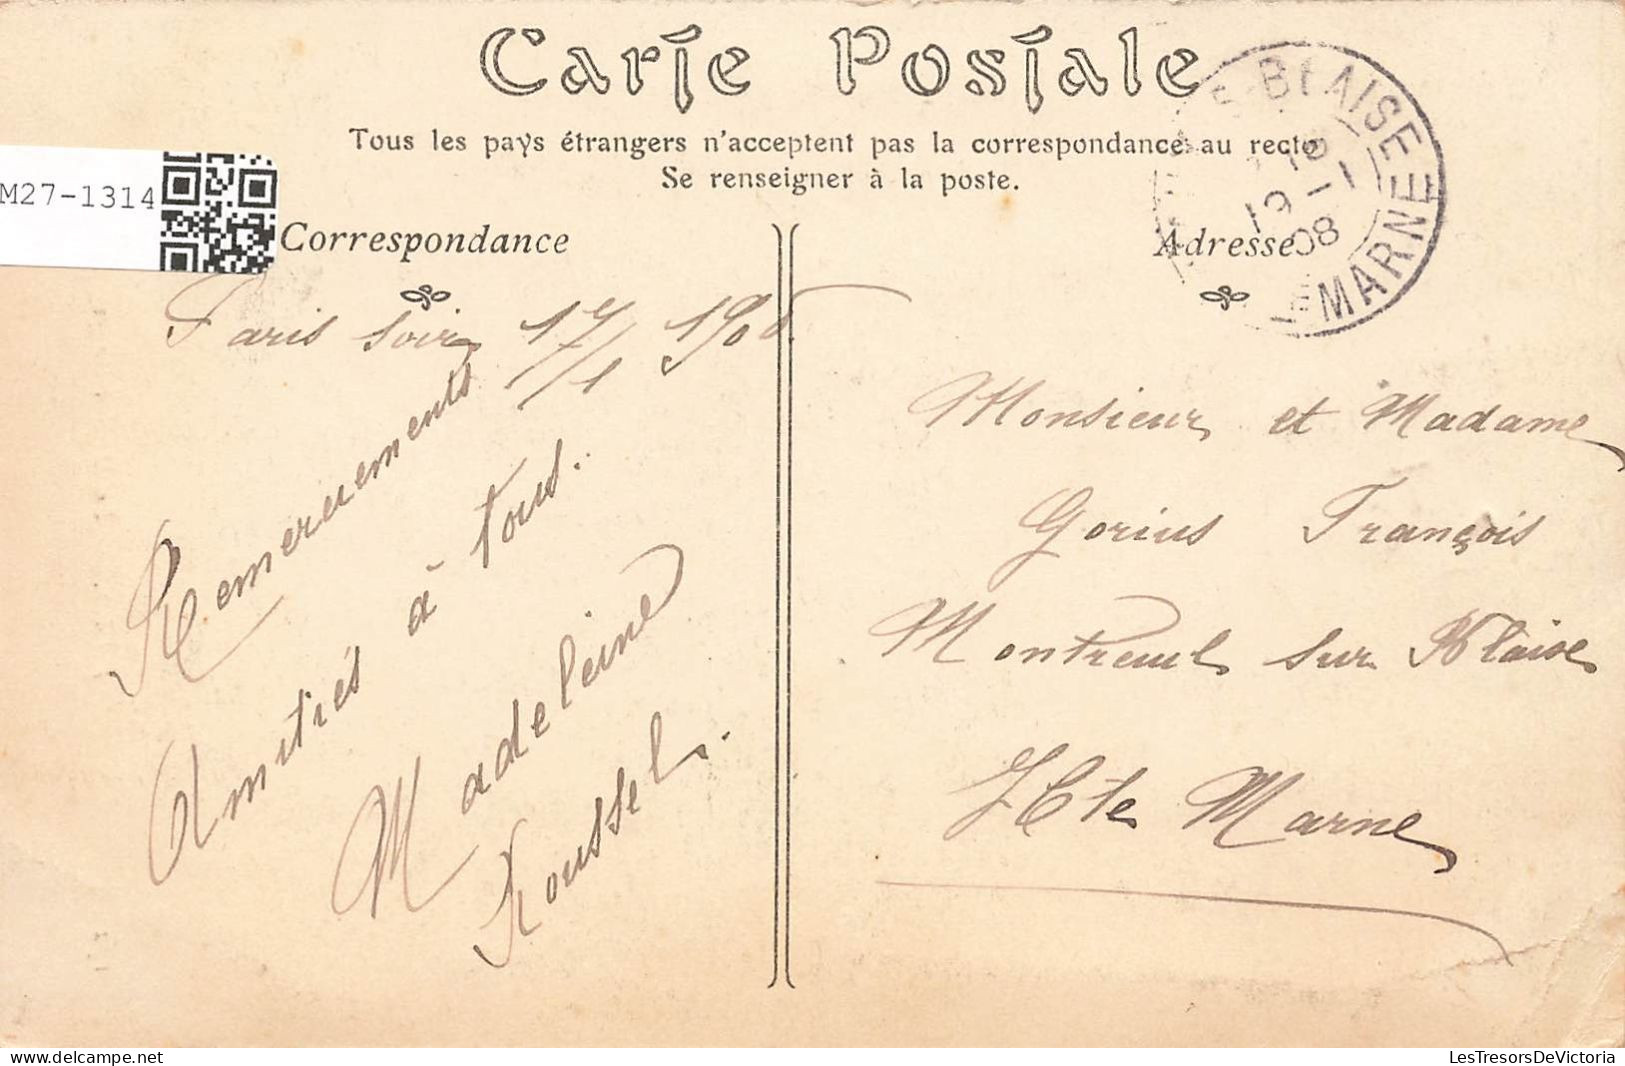 Carte Postale
Tous les pays étrangers n'acceptent pas la correspondance au recto
Se renseigner à la poste.
M27-1314
Correspondance
Adresse
BLAISE
19-1
08
MARNE
Paris soir 17/1 1908
Remerciements
Amitiés à tous.
Madeleine
Roussel.
Monsieur et Madame
Gorius François
Montreuil sur Blaise
Hte Marne
LesTresorsDeVictoria